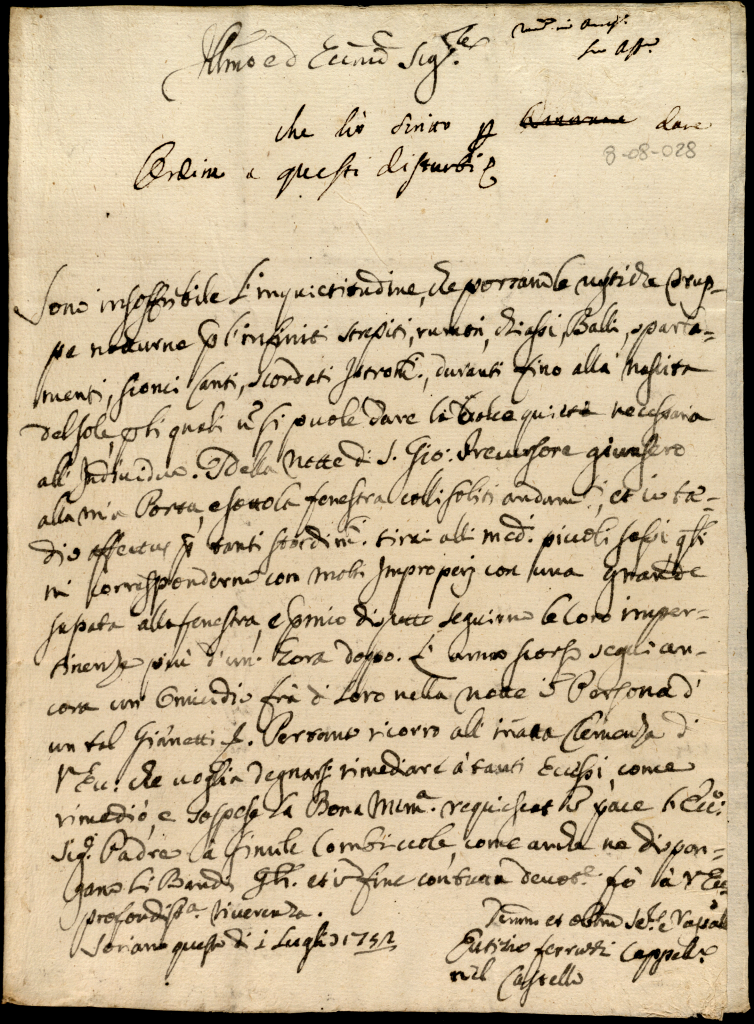 Illmo ed Eccmo Sigre
che li ò scritto p dare
8-08-028
Ordine a questi disturbi
Sono insoffribile l'inquietitudine, che portano le notti che trup-
pe notturne p l'infiniti strepiti, rumori, chiassi, Balli, sparta-
menti, sconci Canti, scordati Istromti, duranti fino alla nascita
del sole, p li quali n si puole dare la dolce quiete necessaria
all'Individuo. Della Notte di S. Gio: Precursore giunsero
alla mia Porta, e sotto la fenestra colli soliti andamti, et io tæ-
dio affectus p tanti stordimti. tirai alli med. piccoli sassi qli
mi corrisposero con molti Improperj con una grande
sassata alla fenestra, e p mio dispetto seguirno le loro imper-
tinenze più d'un' hora doppo. L'anno scorso seguì an-
cora un Omicidio frà di Loro nella notte in Persona di
un tal Giannetti. Pertanto ricorro all'innata Clemenza di
V. Ecc. che voglia degnarsi rimediare à tanti Eccessi, come
rimediò, e sospese la Bona Mem. requiescat in pace l'Ecc.
Sig. Padre la simile Combriccole, come anche ne dispon-
gano li Bandi Gli. et in fine con tutta devot. fò à V. Ecc.
profondissa. riverenza.
Soriano questo dì 1 Luglio 1752
Umo et oblmo Sere e Vassal
Eutizio Ferruzzi Cappelle
nel Castello